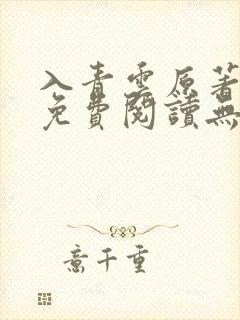 入青雲原著
免費閱讀無
意千重